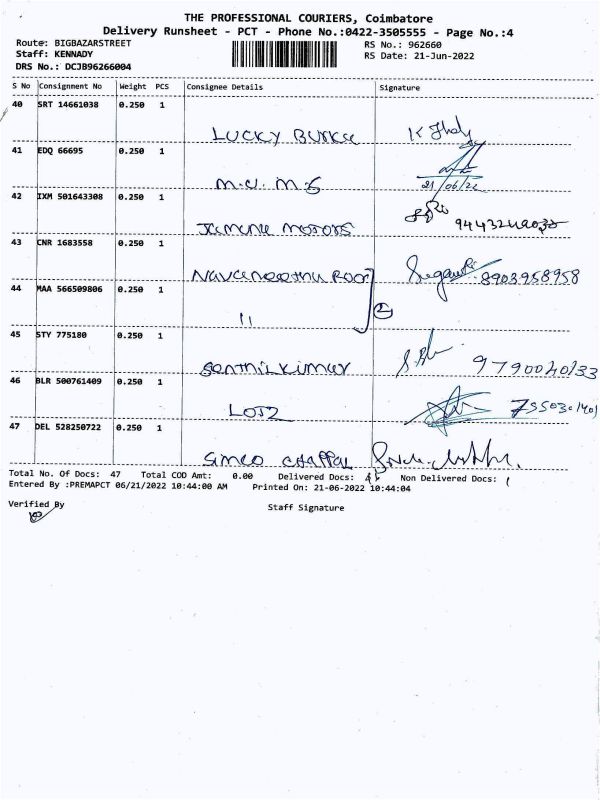 THE PROFESSIONAL COURIERS, Coimbatore
Delivery Runsheet - PCT - Phone No.:0422-3505555 - Page No.:4
Route: BIGBAZARSTREET
RS No.: 962660
Staff: KENNADY
RS Date: 21-Jun-2022
DRS No.: DCJB96266004
S No Consignment No Weight PCS Consignee Details Signature
40 SRT 14661038 0.250 1
LUCKY
41 EDQ 66695 0.250 1
M.U. M S
21/06/22
42 IXM 501643308 0.250 1
MOTORS
43 CNR 1683558 0.250 1
8903958958
44 MAA 566509806 0.250 1
11
2
45 STY 775180 0.250 1
Senthilkumar 9790040133
46 BLR 500761409 0.250 1
47 DEL 528250722 0.250 1
SIMCO CHAPPAL
Total No. Of Docs: 47 Total COD Amt: 0.00 Delivered Docs: Non Delivered Docs:
Entered By :PREMAPCT 06/21/2022 10:44:00 AM Printed On: 21-06-2022 10:44:04
Verified By
Staff Signature